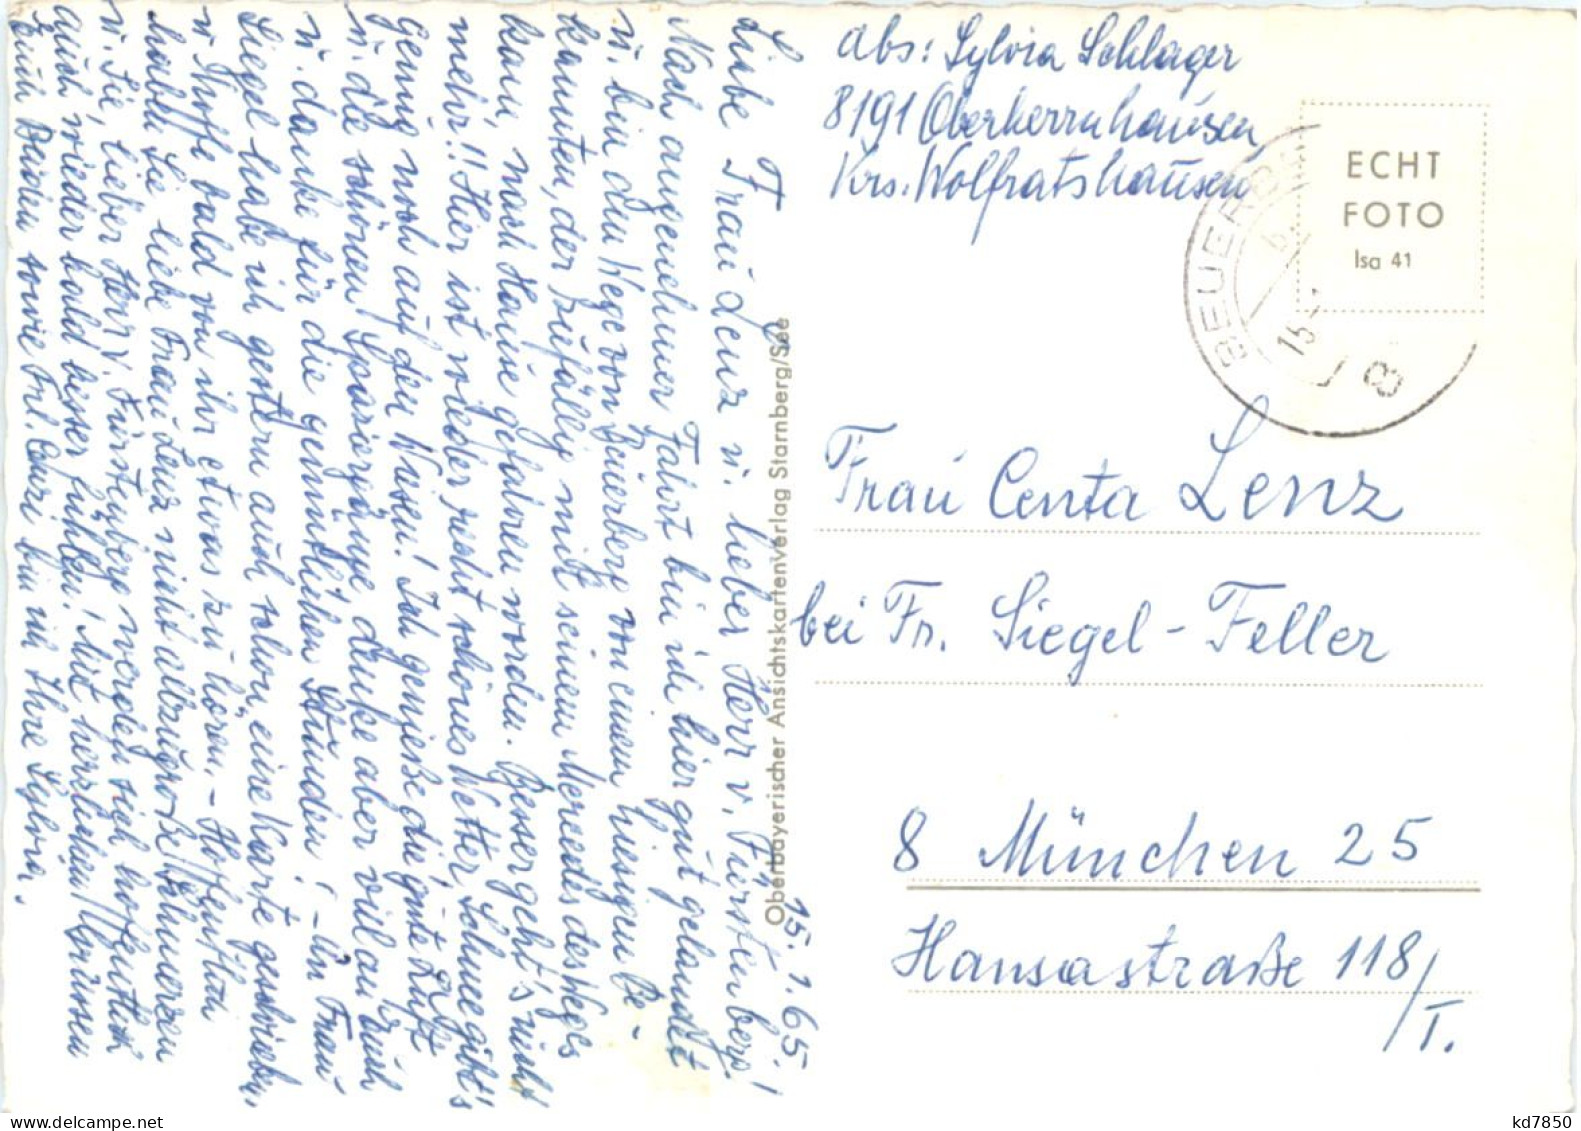 15. 1. 65.
Liebe Frau Lenz u. lieber Herr v. Fürstenberg!
Nach angenehmer Fahrt bin ich hier gut gelandet
u. bin den Wege von Beuerberg von einem hiesigen Be-
kannten, der zufällig mit seinem Mercedes des Wegs
kam, nach Hause gefahren worden. Besser geht's nicht
mehr!! Hier ist wieder recht schönes Wetter, Schnee gibt's
genug noch auf den Wiesen! Ich genieße die gute Luft
u. die schönen Spaziergänge, denke aber viel an Euch
u. danke für die gemütlichen Stunden! – An Frau
Siegel habe ich gestern auch schon eine Karte geschrieben,
u. hoffe bald von ihr etwas zu hören. – Hoffentlich
haben Sie, liebe Frau Lenz nicht allzugroße Schmerzen
u. Sie, lieber Herr v. Fürstenberg werden sich hoffentlich
auch wieder bald besser fühlen! Mit herzlichen Grüssen
Euch Beiden sowie Frl. Cenzi bin ich Ihre Sylvia.
Oberbayerischer Ansichtskartenverlag Starnberg/See
Abs: Sylvia Schlager
8191 Oberherrnhausen
Krs. Wolfratshausen
ECHT
FOTO
Isa 41
8 BEUERBERG
15
8
Frau Centa Lenz
bei Fr. Siegel-Feller
8 München 25
Hansastraße 118/
I.
www.delcampe.net
kd7850